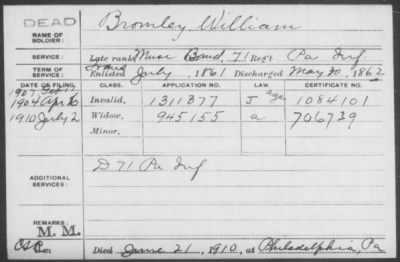 DEAD
NAME OF SOLDIER: Bromley, William
SERVICE: Late rank, Musc Band, 71 Reg't Pa Inf
TERM OF SERVICE: Enlisted July, 1861 Discharged May 30, 1862
DATE OF FILING. CLASS. APPLICATION NO. LAW. CERTIFICATE NO.
1907 Feb
1904 Apr Invalid, 1311377 J age 1084101
1910 July 2 Widow, 945155 a 706739
Minor,
ADDITIONAL SERVICES: D 71 Pa Inf
REMARKS: M. M.
Died June 21, 1910, at Philadelphia, Pa